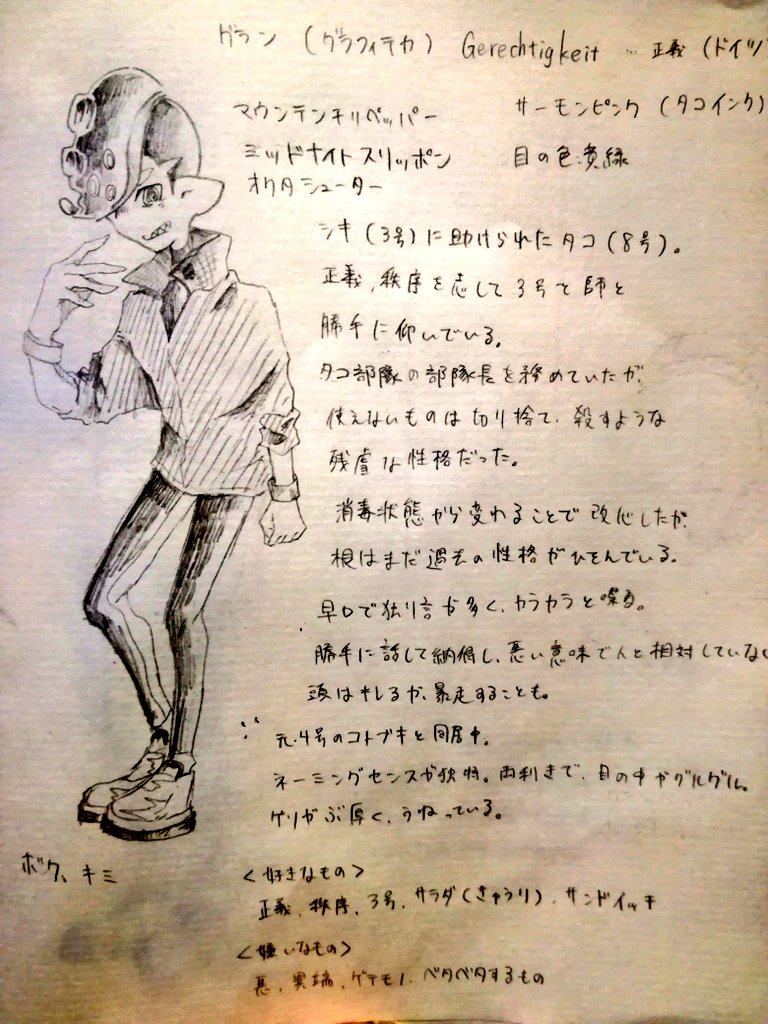 グラン (グラフィテカ) Gerechtigkeit … 正義 (ドイツ
マウンテンチリペッパー サーモンピンク (タコインク)
ミッドナイトスリッポン 目の色:黄緑
オクタシューター
シキ (3号) に助けられたタコ (8号)。
正義、秩序を志して3号を師と
勝手に仰いでいる。
タコ部隊の部隊長を務めていたが、
使えないものは切り捨て、殺すような
残虐な性格だった。
消毒状態から変わることで改心したが、
根はまだ過去の性格がひそんでいる。
早口で独り言が多く、カラカラと喋る。
勝手に話して納得し、悪い意味で人と相対していない
頭はキレるが、暴走することも。
元・4号のコトブキと同居中。
ネーミングセンスが独特。両利きで、目の中がグルグル。
ゲソがぶ厚く、うねっている。
ボク、キミ
<好きなもの>
正義、秩序、3号、サラダ(きゅうり)、サンドイッチ
<嫌いなもの>
悪、異端、ゲテモノ、ベタベタするもの